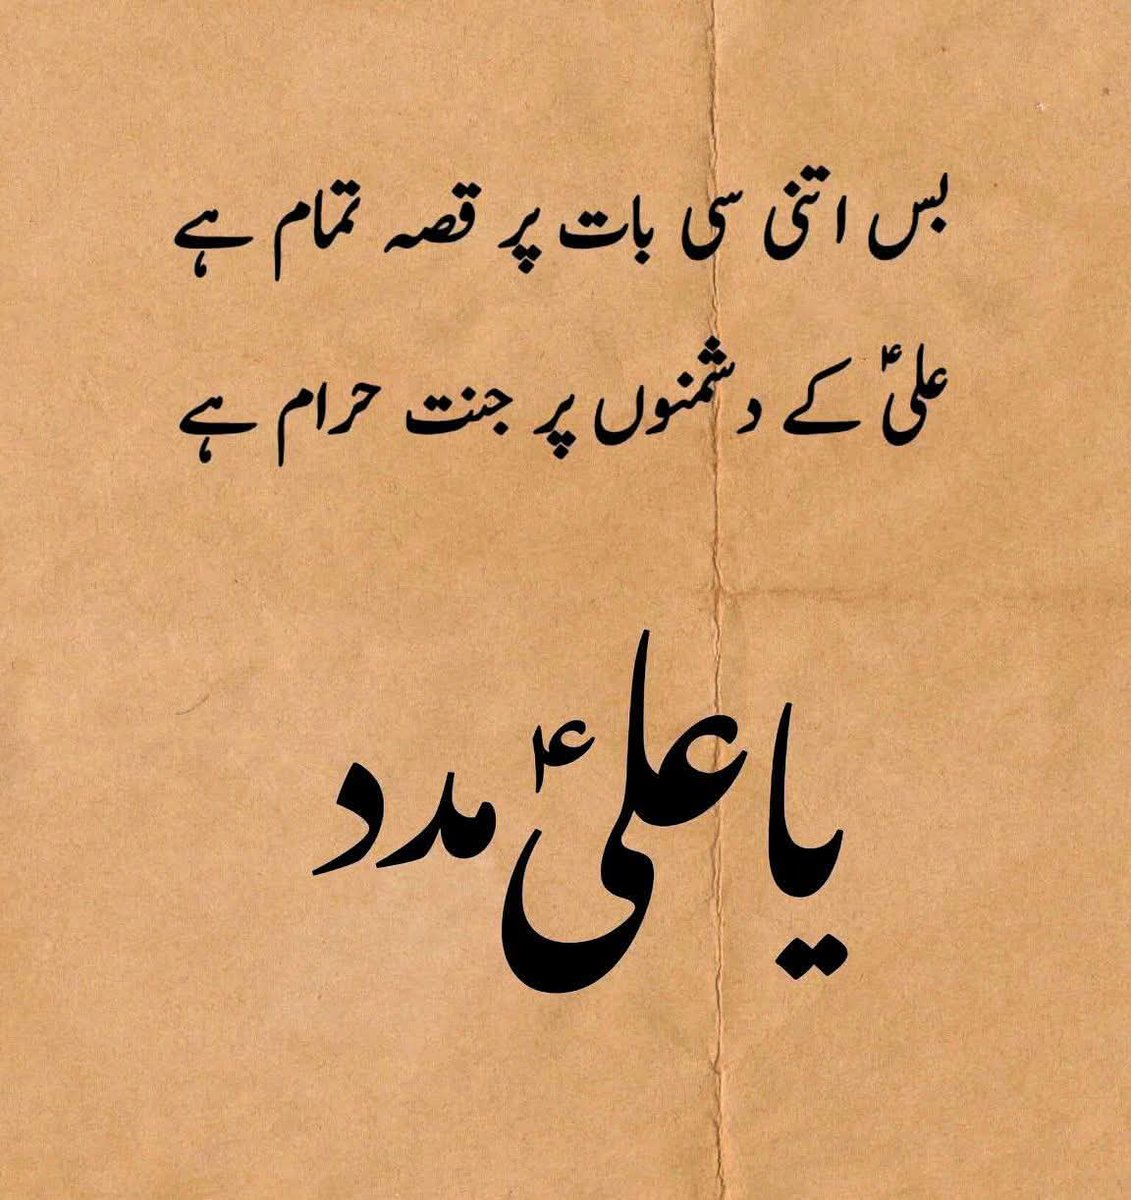 بس اتنی سی بات پر قصہ تمام ہے
علیؑ کے دشمنوں پر جنت حرام ہے
یا علیؑ مدد